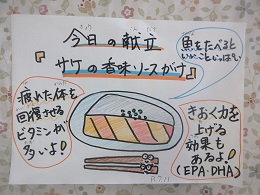 今日の献立
『サケの香味ソースがけ』
魚をたべると
いいこといっぱい
疲れた体を
回復させる
ビタミンが
多いよ!
きおく力を
上げる
効果も
あるよ!
(EPA・DHA)